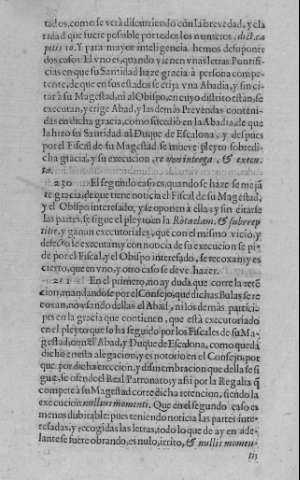 tados, como se verà discurriendo con la brevedad, y cla
ridad que fuere posible por todos los numeros, dict. ca
pitis 10. Y para mayor inteligencia hemos de suponer
dos casos. El vno es, quando vienen vnas letras Pontifi
cias en que su Santidad haze gracia à persona compe-
tente, de que en sus estados se erija vna Abadia, y sin ci-
tar à su Magestad, ni al Obispo, en cuyo distrito estàn, se
executan, y erige Abad, y las demàs Prevendas conteni-
das en dicha gracia, como sucediò en la Abadia, de que
la hizo su Santidad al Duque de Escalona, y despues
por el Fiscal de su Magestad se mueve pleyto sobre di-
cha gracia, y su execucion, re non integra, & exten-
ta.
230 El segundo caso es, quando se haze semeja
te gracia, de que tiene noticia el Fiscal de su Magestad,
y el Obispo interesado, y se oponen à ella; y sin citarse
las partes, se sigue el pleyto en la Rota clam, & subrep-
titie, y ganan executoriales, que con el mismo vicio, y
defecto se executan; y con noticia de su execucion se pi-
de por el Fiscal, y el Obispo interesado, se recoxan; y es
cierto, que en vno, y otro caso se deve hazer.
231 En el primero, no ay duda que corre la reten
cion, mandandose por el Consejo, que dichas Bulas se re
coxan, no vsando dellas el Abad, ni los demàs partici-
pes en la gracia que contienen, que està executoriado
en el pleyto que se ha seguido por los Fiscales de su Ma-
gestad, con el Abad, y Duque de Escalona, como queda
dicho en esta alegacion, y es notorio en el Consejo, por
que por dicha ereccion, y dismembracion que della se si
gue, se ofende el Real Patronato; y assi por la Regalia q̃
compete à su Magestad corre dicha retencion, siendo la
execucion nullius momenti. Que en el segundo caso es
menos dubitable; pues teniendo noticia las partes inte-
resadas, y recogidas las letras, todo lo que de ay en ade-
lante se fuere obrando, es nulo, irrito, & nullis momen-
ti;